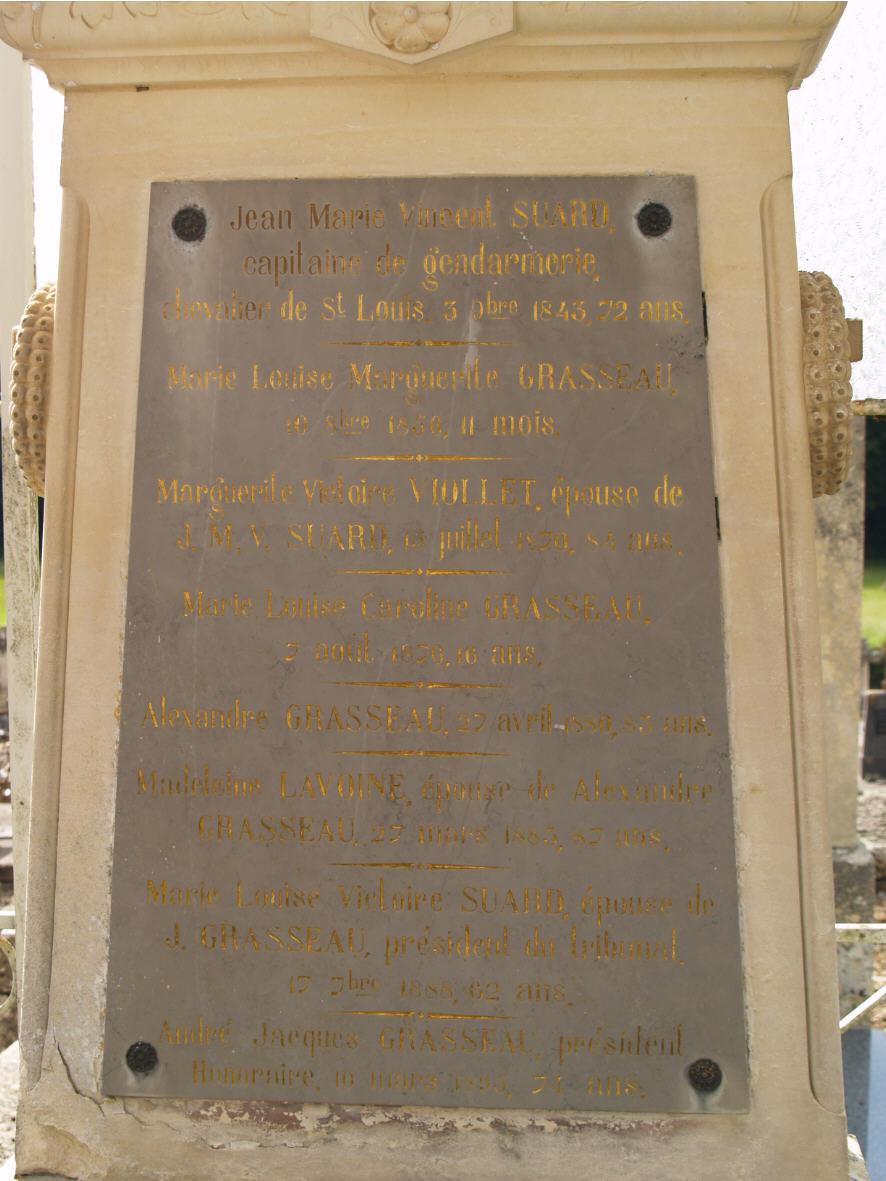 Jean Marie Vincent SUARD,
capitaine de gendarmerie,
chevalier de St Louis, 3 9bre 1843, 72 ans.
Marie Louise Marguerite GRASSEAU,
10 8bre 1850, 11 mois.
Marguerite Victoire VIOLLET, épouse de
J. M. V. SUARD, 13 juillet 1870, 84 ans.
Marie Louise Caroline GRASSEAU,
7 août 1870, 16 ans.
Alexandre GRASSEAU, 27 avril 1880, 83 ans.
Madeleine LAVOINE, épouse de Alexandre
GRASSEAU, 27 mars 1883, 87 ans.
Marie Louise Victoire SUARD, épouse de
J. GRASSEAU, président du tribunal,
17 7bre 1888, 62 ans.
André Jacques GRASSEAU, président
Honoraire, 10 mars 1895, 74 ans.